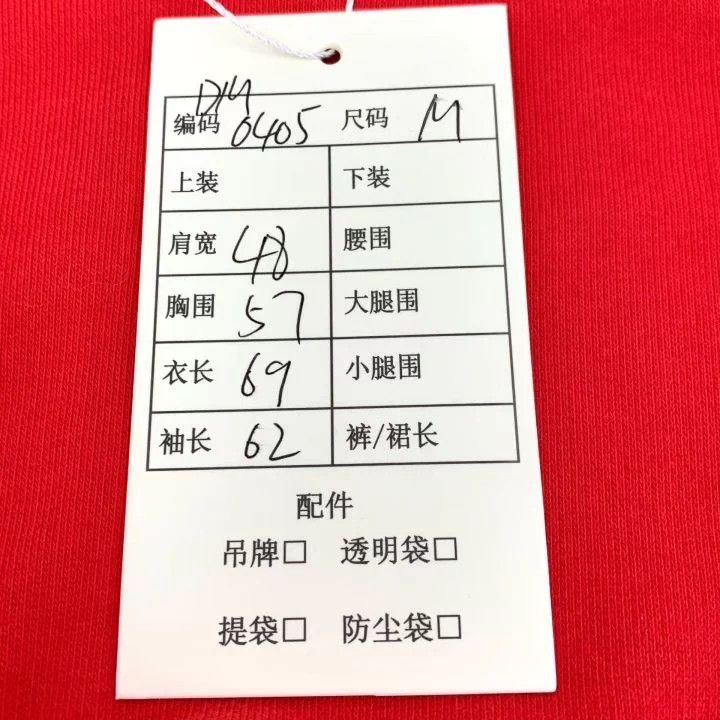 DM
编码 0405 尺码 M
上装 下装
肩宽 48 腰围
胸围 57 大腿围
衣长 69 小腿围
袖长 62 裤/裙长
配件
吊牌□ 透明袋□
提袋□ 防尘袋□